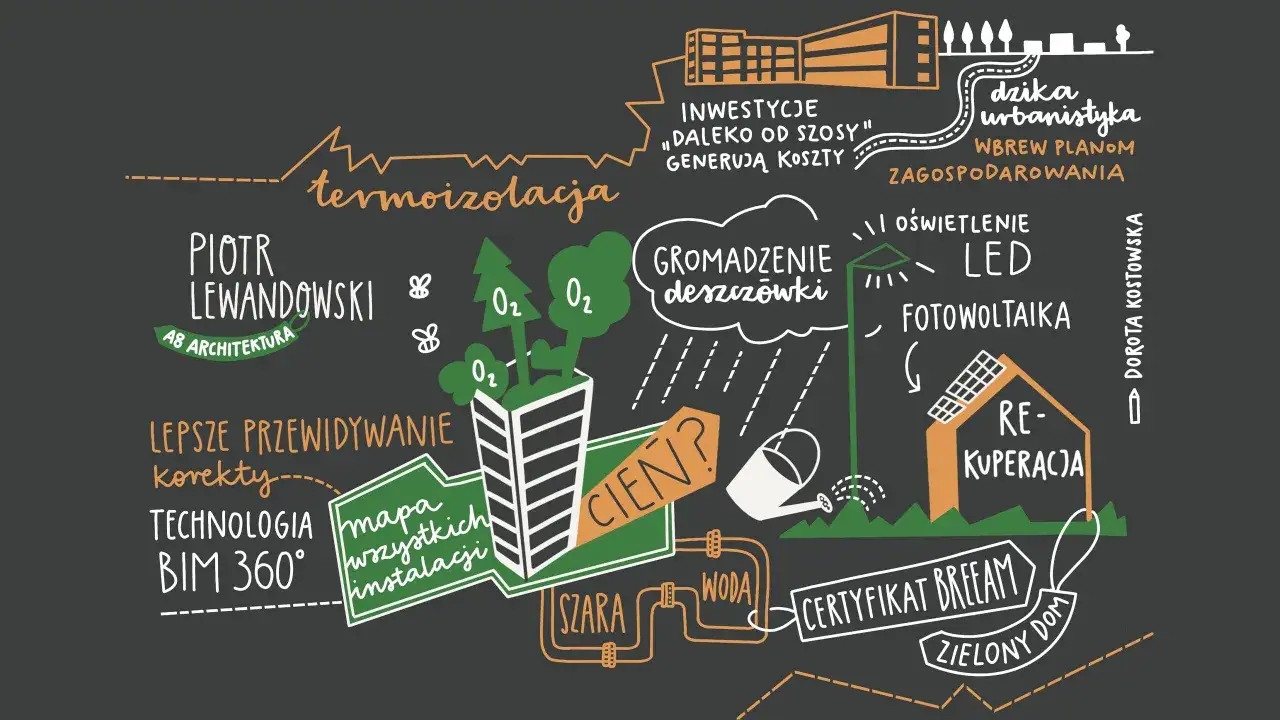 INWESTYCJE
"DALEKO OD SZOSY"
GENERUJĄ KOSZTY
dzika
urbanistyka
WBREW PLANOM
ZAGOSPODAROWANIA
termoizolacja
PIOTR
LEWANDOWSKI
AB ARCHITEKTURA
O₂
O₂
O₂
GROMADZENIE
deszczówki
OŚWIETLENIE
LED
FOTOWOLTAIKA
DOROTA KOSTOWSKA
RE-
KUPERACJA
LEPSZE PRZEWIDYWANIE
korekty
TECHNOLOGIA
BIM 360°
mapa
wszystkich
instalacji
CIEŃ?
SZARA
WODA
CERTYFIKAT BREEAM
ZIELONY DOM